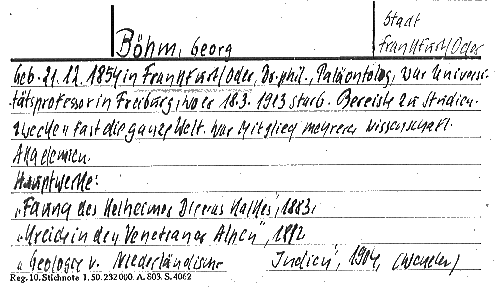 Böhm, Georg
Stadt
Frankfurt/Oder
Geb. 21.12.1854 in Frankfurt/Oder, Dr. phil., Paläontolog, war Universi-
tätsprofessor in Freiburg, wo er 18.3.1913 starb. Bereiste zu Studien-
zwecken fast die ganze Welt. War Mitglied mehrerer wissenschaft.
Akademien.
Hauptwerke:
„Fauna des Kelheimer Diceras Kalkes", 1883,
„Kreide in den Venetianer Alpen", 1892
„Geologie v. Niederländische Indien", 1904,
Reg. 10. Stichnote 1.50. 232000. A. 803. S. 4062